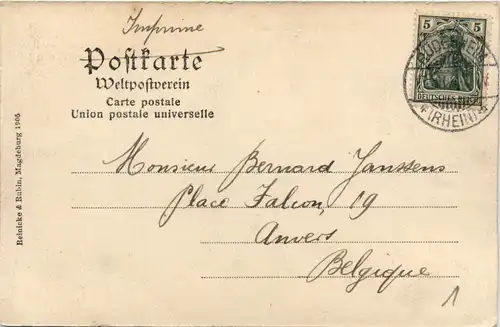 Imprimé
Postkarte
Weltpostverein
Carte postale
Union postale universelle
5 5
DEUTSCHES REICH
(RHEIN)
Monsieur Bernard Janssens
Place Falcon, 19
Anvers
Belgique
1
Reinicke & Rubin, Magdeburg 1905